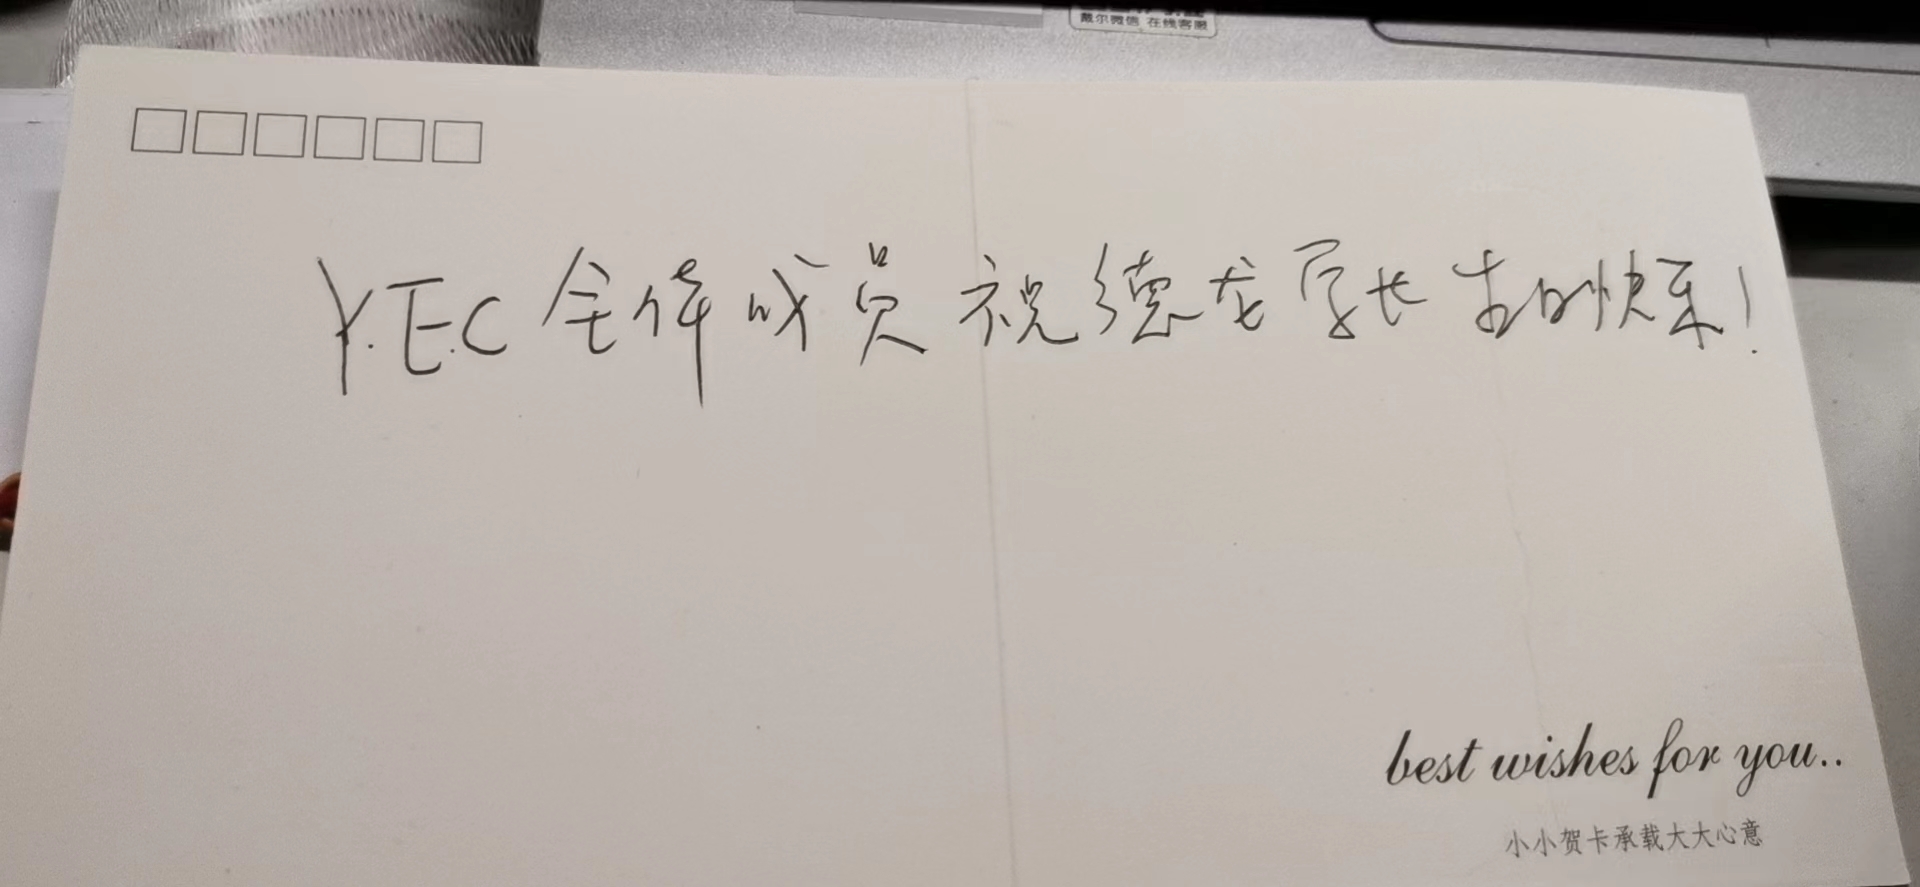 戴尔微信 在线客服
Y.E.C 全体成员祝德龙学长生日快乐!
best wishes for you..
小小贺卡承载大大心意